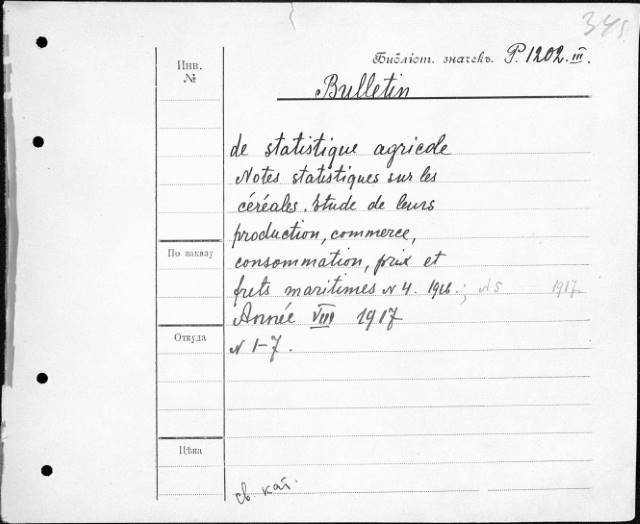 345
Инв.
№
Библіот. значекъ. P. 1202. III.
Bulletin
de statistique agricole
Notes statistiques sur les
céréales. Etude de leurs
production, commerce,
По заказу
consommation, prix et
frets maritimes N 4. 1916.; N5 1917
Année VIII 1917
Откуда
N 1-7.
Цѣна
св. кат.